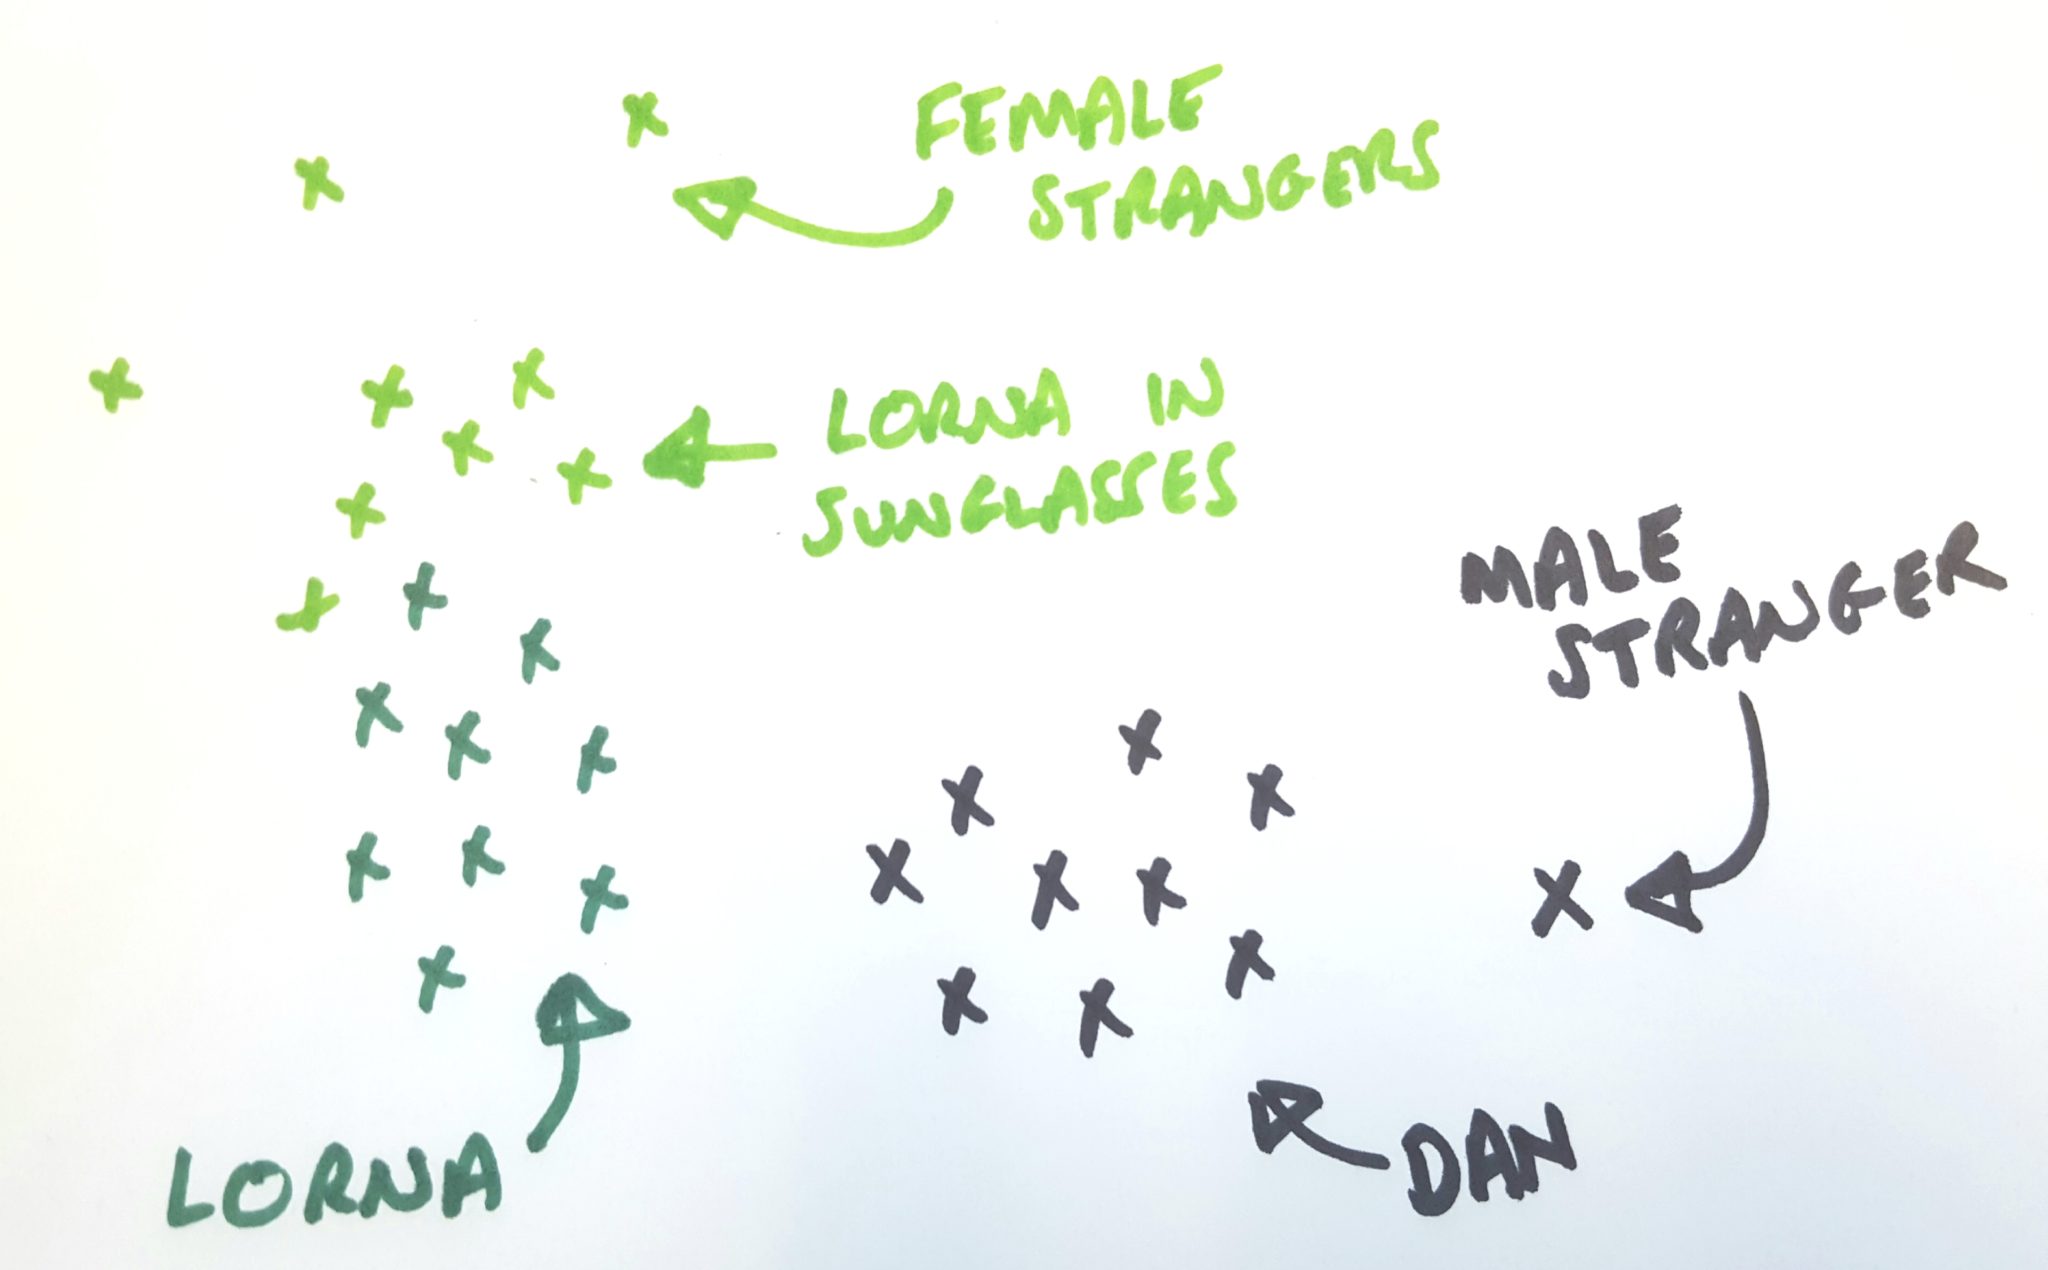 FEMALE
STRANGERS
LORNA IN
SUNGLASSES
MALE
STRANGER
LORNA
DAN